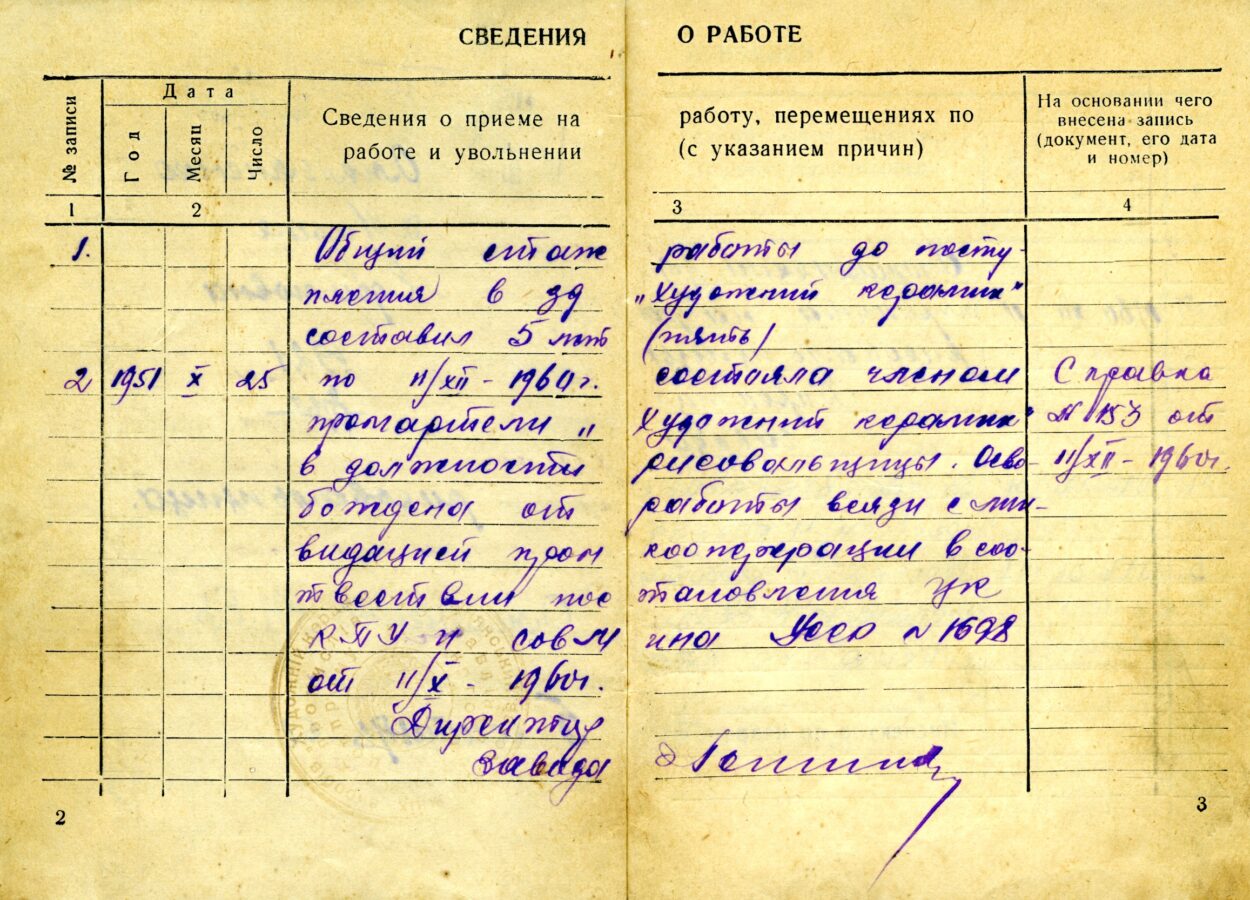 СВЕДЕНИЯ О РАБОТЕ
№ записи
Дата
Год
Месяц
Число
Сведения о приеме на работу, перемещениях по
работе и увольнении (с указанием причин)
На основании чего
внесена запись
(документ, его дата
и номер)
1 2 3 4
1. Общий стаж работы до посту
пления в зд „Художний керамик"
составил 5 лет (пять)
2 1951 X 25 по 11/XII - 1960г. состояла членом Справка
промартели „Художний керамик" N 153 от
в должности рисовальщицы. Осво- 11/XII - 1960г.
бождена от работы всязи с лик-
видацией пром кооперации в соо-
тветствии пос тановления цк
КПУ и совм ина Усср N 1698
от 11/X - 1960г.
Директор
завода
2
3